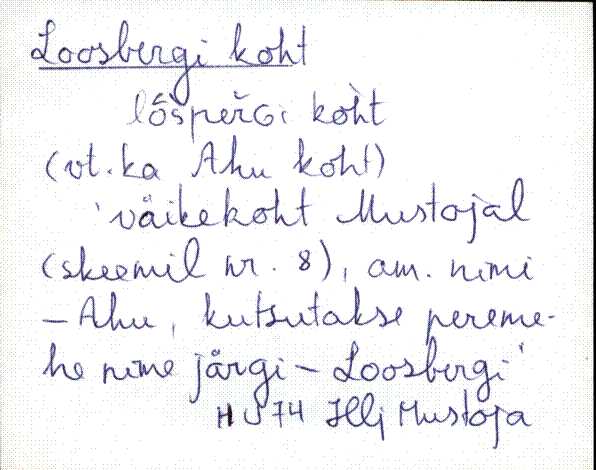 Loosbergi koht
koht
(vt. ka Ahu koht)
'väikekoht Mustojal
(skeemil nr. 8), am. nimi
– Ahu, kutsutakse pereme-
he nime järgi – Loosbergi'
74 Mustoja